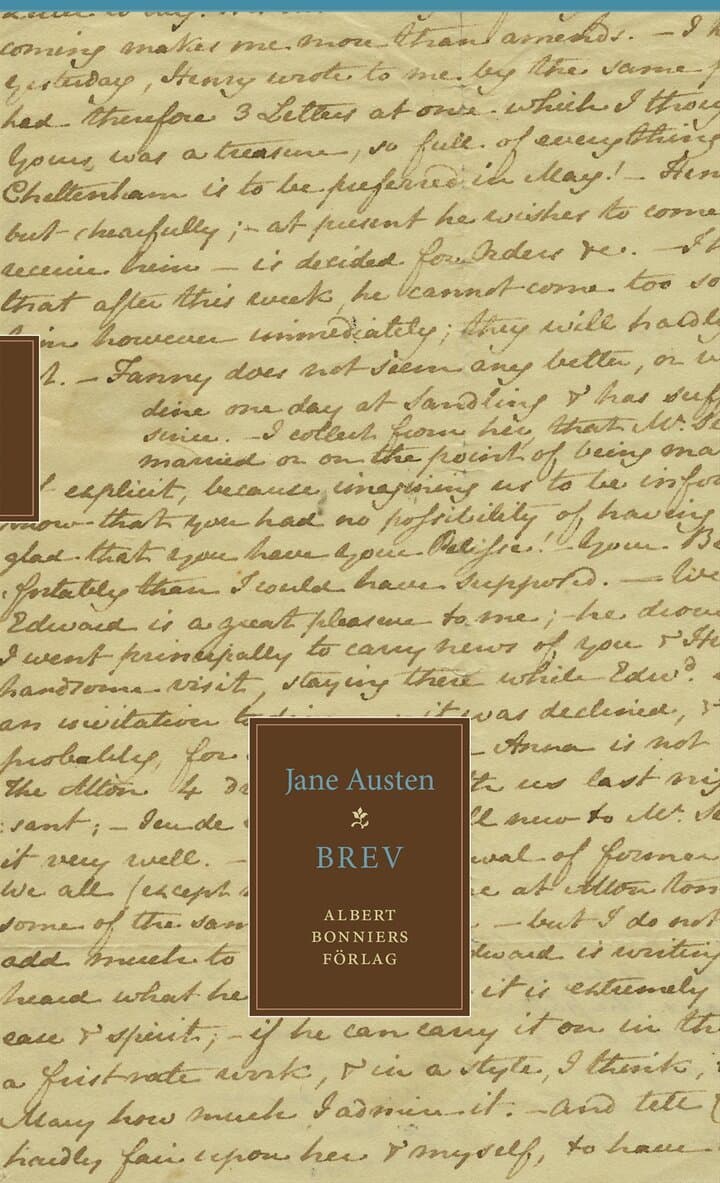 coming makes me more than amends. — I
yesterday, Henry wrote to me by the same
had therefore 3 Letters at once which I thou
Yours was a treasure, so full of everything
Cheltenham is to be preferred in May! — Hen
but chearfully; — at present he wishes to come
receive him — is decided for Orders &c. — I
that after this week he cannot come too so
him however immediately; they will hardly
t. — Fanny does not seem any better, or
dine one day at Sandling & has suff
since. — I collect from her, that Mr.
married or on the point of being ma
explicit, because imagining us to be infor
know that you had no possibility of having
glad that you have your Pelisse! — Your
fortably than I could have supposed. —
Edward is a great pleasure to me; — he drove
I went principally to carry news of you & H
handsome visit, staying there while Edwd.
an invitation it was declined, &
probably, for — Anna is not
the Alton 4 us last nig
new to Mr.
it very well. — of former
We all (except at Alton tom
some of the sam — but I do not
add much to is writing
heard what he it is extremely
ease & spirit; — if he can carry it on in the
a first-rate work, & in a style, I think,
Mary how much I admire it. — And tell
hardly fair upon her & myself, to have
Jane Austen
BREV
ALBERT
BONNIERS
FÖRLAG